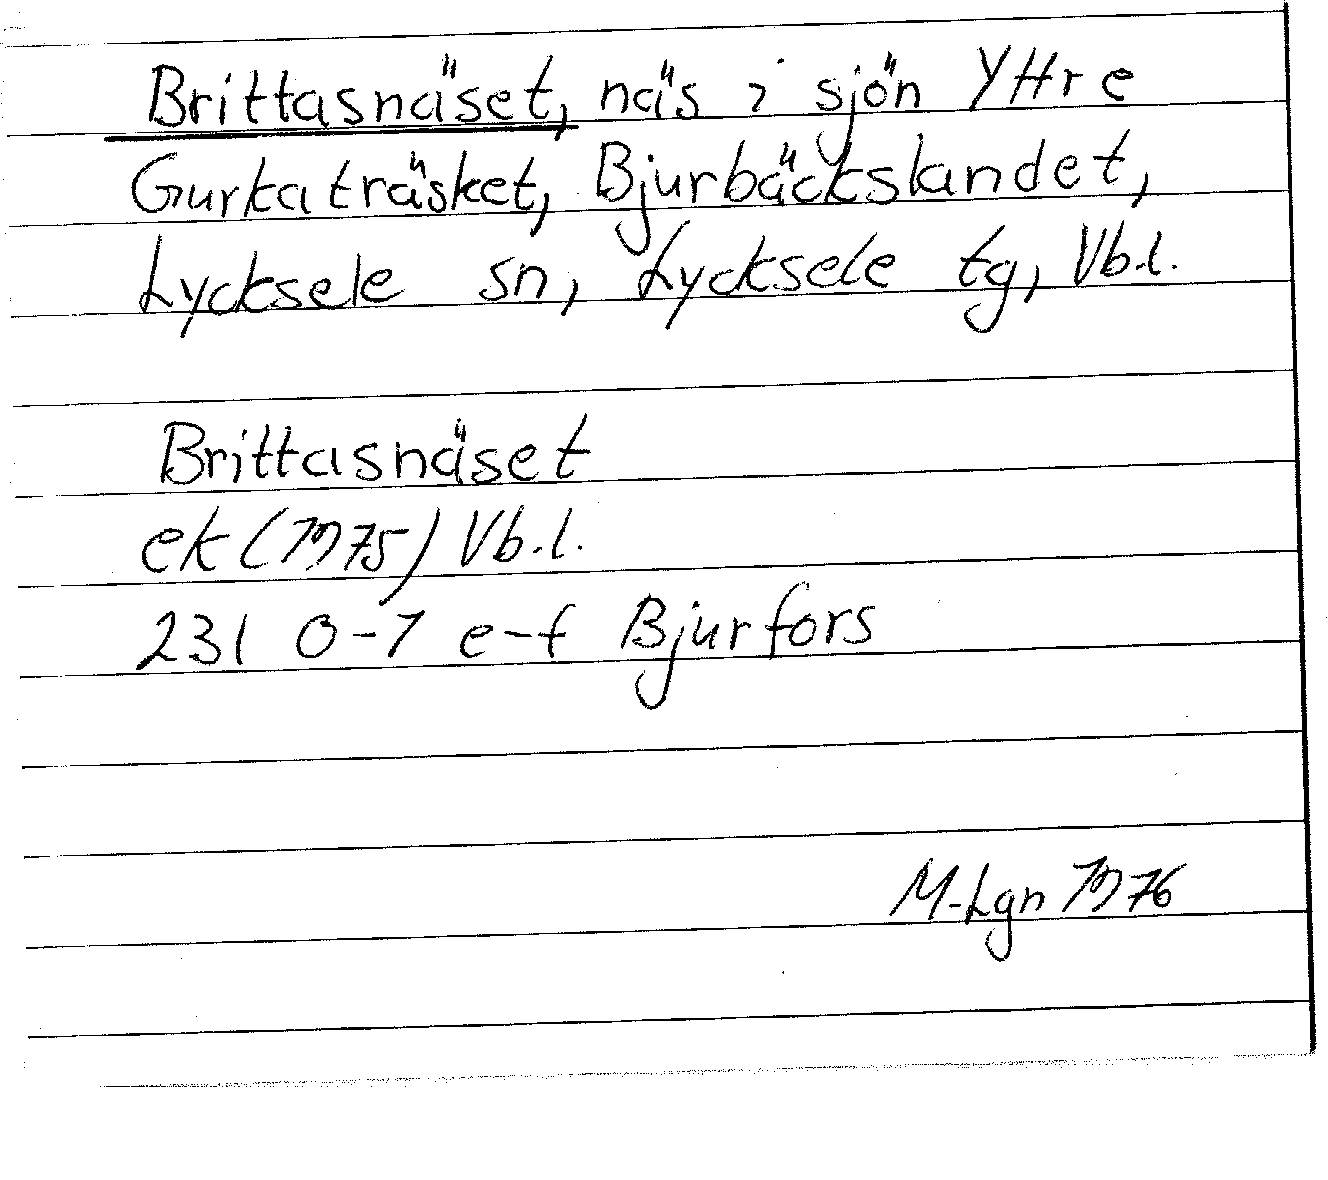 Brittasnäset, näs i sjön Yttre
Gurkaträsket, Bjurbäckslandet,
Lycksele sn, Lycksele tg, Vb.l.
Brittasnäset
ek (1975) Vb.l.
231 0-1 e-f Bjurfors
M-Lgn 1976